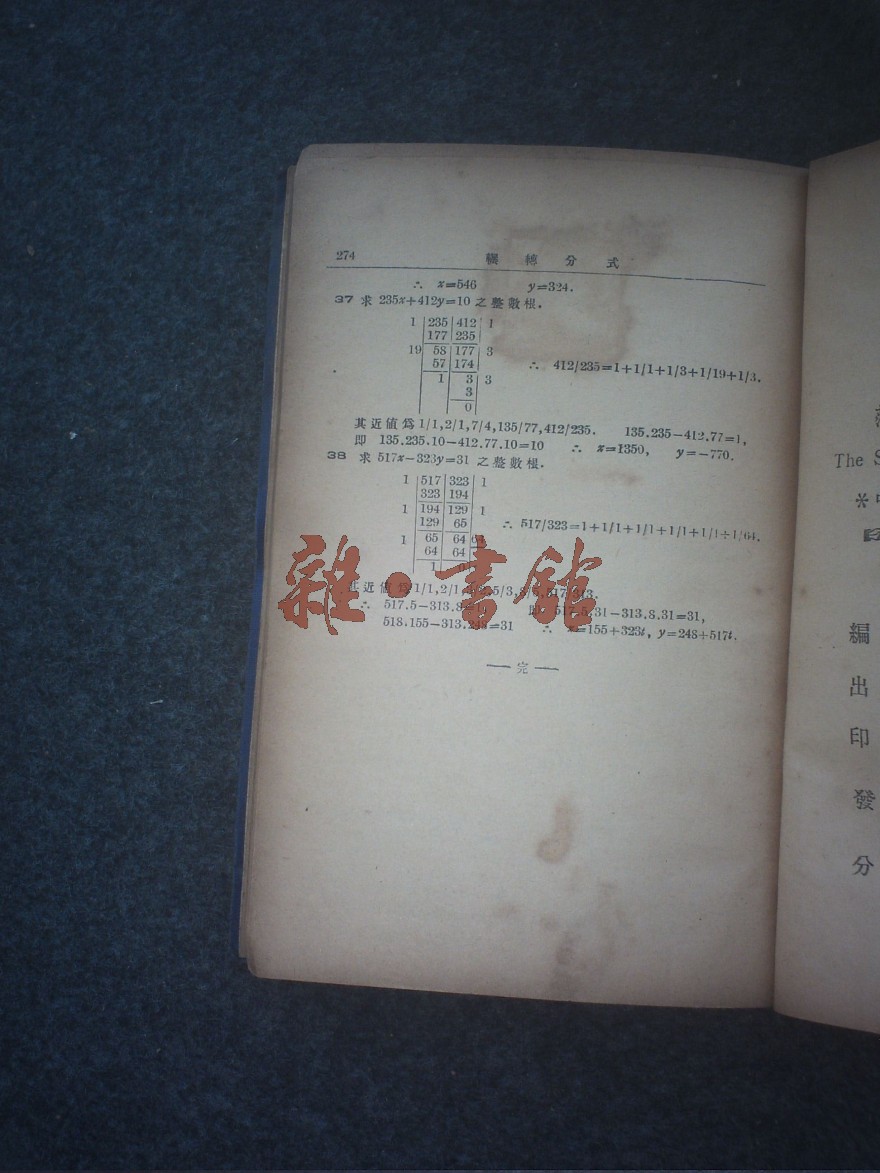 274 輾轉分式
∴ x=546 y=324.
37 求 235x+412y=10 之整數根.
1 235 412 1
177 235
19 58 177 3
57 174
1 3 3
3
0
∴ 412/235=1+1/1+1/3+1/19+1/3.
其近值爲 1/1,2/1,7/4,135/77,412/235. 135.235−412.77=1,
即 135.235.10−412.77.10=10 ∴ x=1350, y=−770.
38 求 517x−323y=31 之整數根.
1 517 323 1
323 194
1 194 129 1
129 65
1 65 64 64
64 64
1
∴ 517/323=1+1/1+1/1+1/1+1/1÷1/64.
其近值爲 1/1,2/1, 5/3,8/5,517/
∴ 517.5−313.8= 即 517.5.31−313.8.31=31,
518.155−313.248=31 ∴ x=155+323t, y=248+517t.
— 完 —
雜·書館
The S
編
出
印
發
分